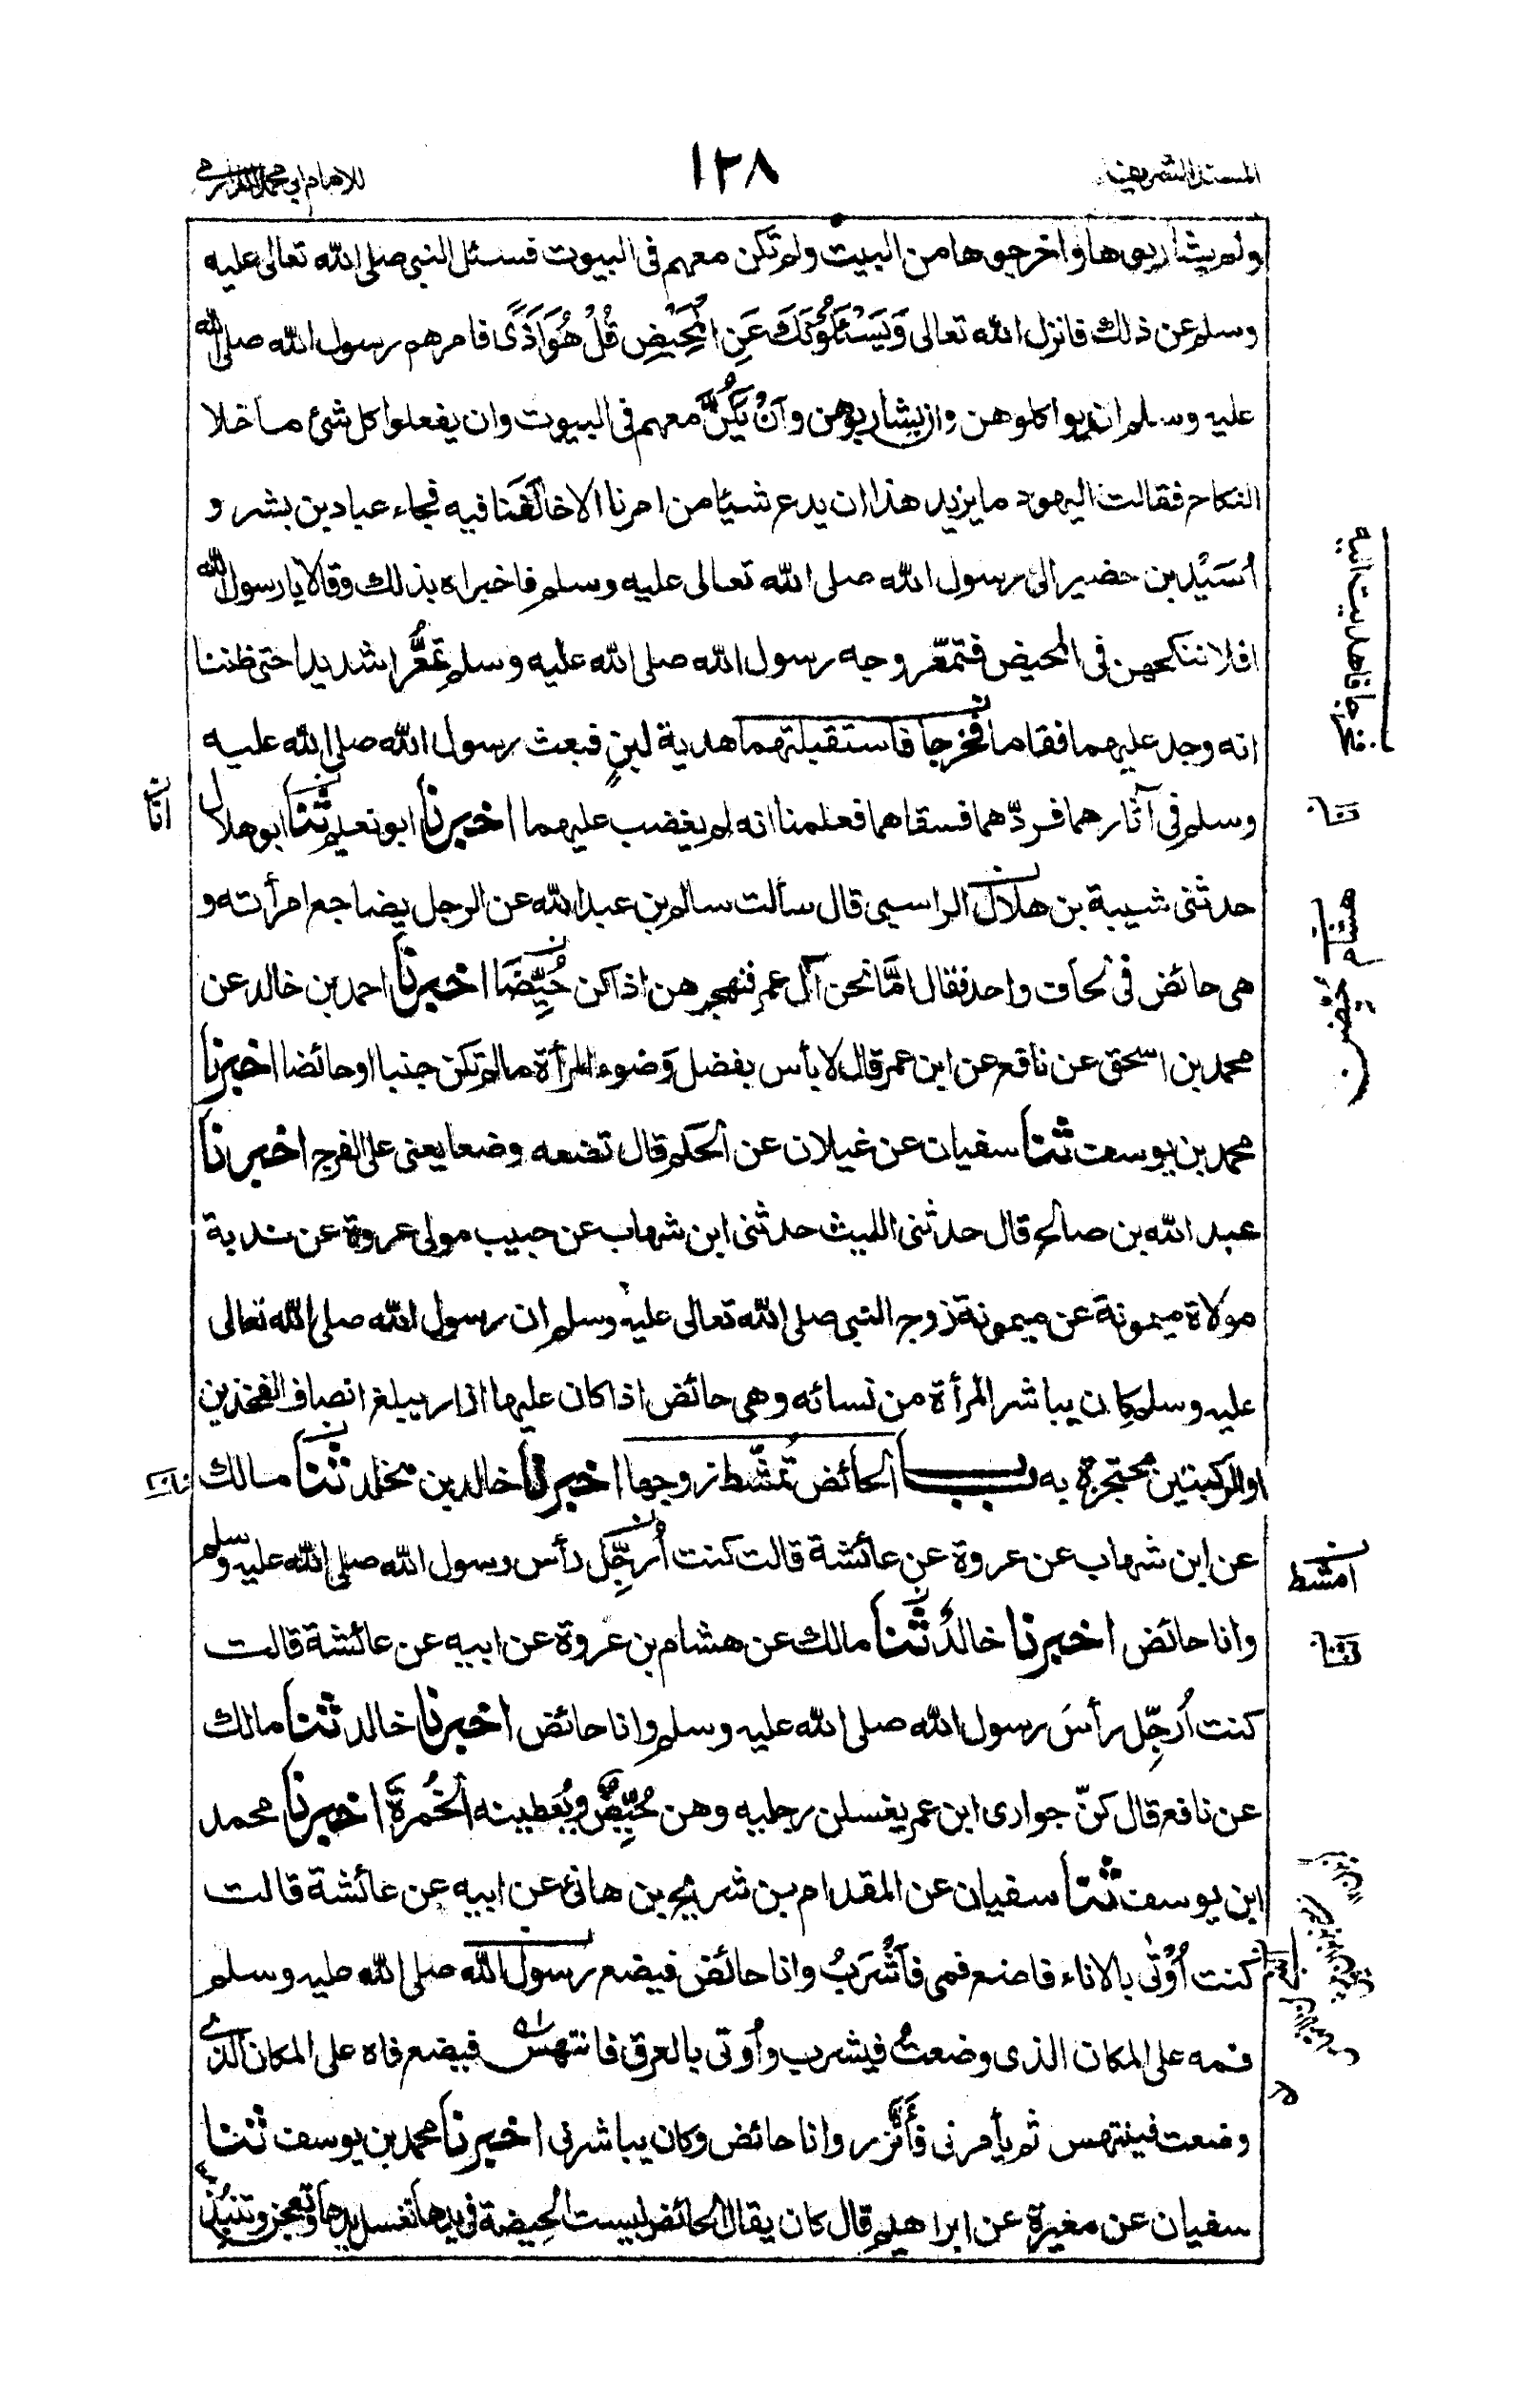 المسند الشريف
١٢٨
للامام ابي محمد الدارمي
ولم يشاربوها واخرجوها من البيت ولم تكن معهم فى البيوت فسئل النبى صلى الله تعالى عليه
وسلم عن ذلك فانزل الله تعالى وَيَسْئَلُونَكَ عَنِ الْمَحِيْضِ قُلْ هُوَ اَذًى فامرهم رسول الله صلى الله
عليه وسلم ان يواكلوهن وان يشاربوهن وَاَنْ يَكُنَّ معهم فى البيوت وان يفعلوا كل شئ ما خلا
النكاح فقالت اليهود ما يزيد هذا ان يدع شيئا من امرنا الا خالَفَنا فيه فجاء عباد بن بشر و
اُسَيْد بن حضير الى رسول الله صلى الله تعالى عليه وسلم فاخبراه بذلك وقالا يا رسول الله
افلا ننكحهن فى المحيض فتمعّر وجه رسول الله صلى الله عليه وسلم تمعُّرا شديدا حتى ظننا
انه وجد عليهما فقاما فخرجا فاستقبلتهما هدية لبنٍ فبعث رسول الله صلى الله عليه
وسلم فى آثارهما فردّهما فسقاهما فعلمنا انه لم يغضب عليهما اخبرنا ابو نعيم ثنا ابو هلال
حدثنى شيبة بن هلال الراسبى قال سألت سالم بن عبد الله عن الرجل يضاجع امرأته و
هى حائض فى لحاف واحد فقال امَّا نحن آل عمر فنهجرهن اذا كن حُيَّضًا اخبرنا احمد بن خالد عن
محمد بن اسحق عن نافع عن ابن عمر قال لا بأس بفضل وَضوء المرأة ما لم تكن جنبا او حائضا اخبرنا
محمد بن يوسف ثنا سفيان عن غيلان عن الحَكم قال تضعه وضعا يعنى على الفرج اخبرنا
عبد الله بن صالح قال حدثنى الليث حدثنى ابن شهاب عن حبيب مولى عروة عن ندبة
مولاة ميمونة عن ميمونة زوج النبى صلى الله تعالى عليه وسلم ان رسول الله صلى الله تعالى
عليه وسلم كان يباشر المرأة من نسائه وهى حائض اذا كان عليها ازار يبلغ انصاف الفخذين
او الركبتين محتجزة به بـــاب الحائض تُمشّط زوجها اخبرنا خالد بن مخلد ثنا مالك
عن ابن شهاب عن عروة عن عائشة قالت كنت اُرجِّل رأس رسول الله صلى الله عليه وسلم
وانا حائض اخبرنا خالد ثنا مالك عن هشام بن عروة عن ابيه عن عائشة قالت
كنت اُرجِّل رأسَ رسول الله صلى الله عليه وسلم وانا حائض اخبرنا خالد ثنا مالك
عن نافع قال كنّ جوارى ابن عمر يغسلن رجليه وهن حُيَّضٌ ويُعطينه الخُمرةَ اخبرنا محمد
ابن يوسف ثنا سفيان عن المقدام بن شريح بن هانئ عن ابيه عن عائشة قالت
كنت اُوْتٰى بالاناء فاضع فمى فاَشْرَبُ وانا حائض فيضع رسول الله صلى الله عليه وسلم
فمه على المكان الذى وضعتُ فيشرب واُوتى بالعرق فانتهس فيضع فاه على المكان الذى
وضعت فينتهس ثم يأمرنى فأَتَّزر وانا حائض وكان يباشرنى اخبرنا محمد بن يوسف ثنا
سفيان عن مغيرة عن ابراهيم قال كان يقال الحائض ليست الحِيضة فى يدها تغسل يدها وتعجن وتنبُذ
فخرجا فاهديت اليه
انا
ثنا
هشام
حُيَّض
امشط
ثنا